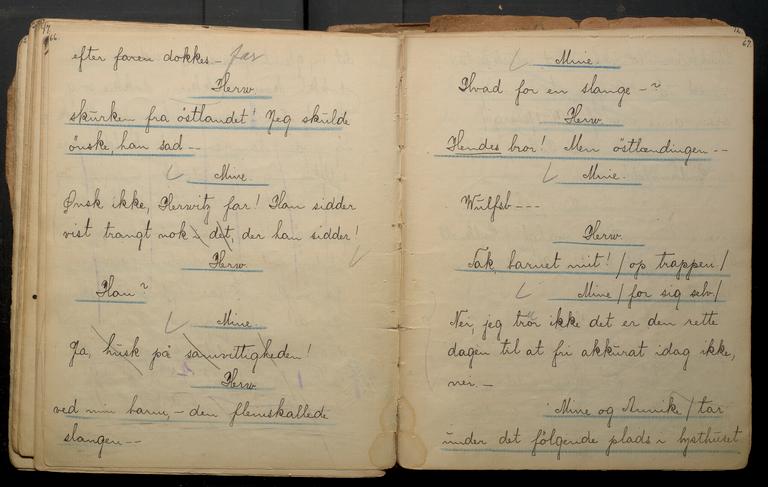 66.
efter faren dokkes – far
Herw.
skurken fra östlandet! Jeg skulde
önske, han sad --
Mine.
Ønsk ikke, Herwitz far! Han sidder
vist trangt nok – det, der han sidder!
Herw.
Han?
Mine.
Ja, husk på samvittigheden!
Herw.
ved min barm, – den flenskallede
slangen --
67.
Mine.
Hvad for en slange –?
Herw.
Hendes bror! Men östlændingen --
Mine.
Wulfsb ---
Herw.
Tak, barnet mit! / op trappen /
Mine / for sig selv /
Nei, jeg tror ikke det er den rette
dagen til at fri akkurat idag ikke,
nei. –
Mine og Annike / tar
under det fölgende plads i lysthuset